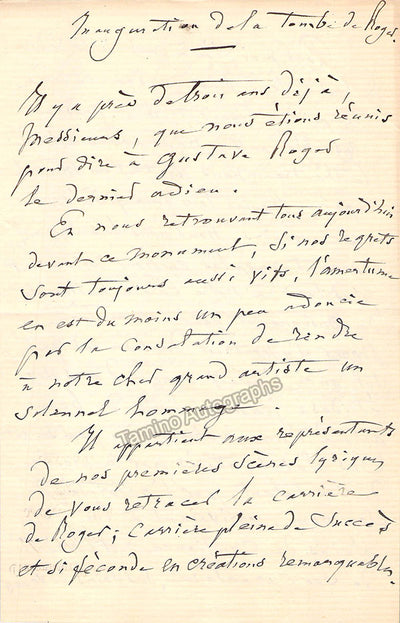 Inauguration de la tombe de Roger.
Il y a près de trois ans déjà,
Messieurs, que nous étions réunis
pour dire à Gustave Roger
le dernier adieu.
En nous retrouvant tous aujourd'hui
devant ce monument, si nos regrets
sont toujours aussi vifs, l'amertume
en est du moins un peu adoucie
par la consolation de rendre
à notre cher grand artiste un
solennel hommage.
Tamino Autographs
Il appartient aux représentants
de nos premières scènes lyriques
de vous retracer la carrière
de Roger; carrière pleine de succès
et si féconde en créations remarquables.